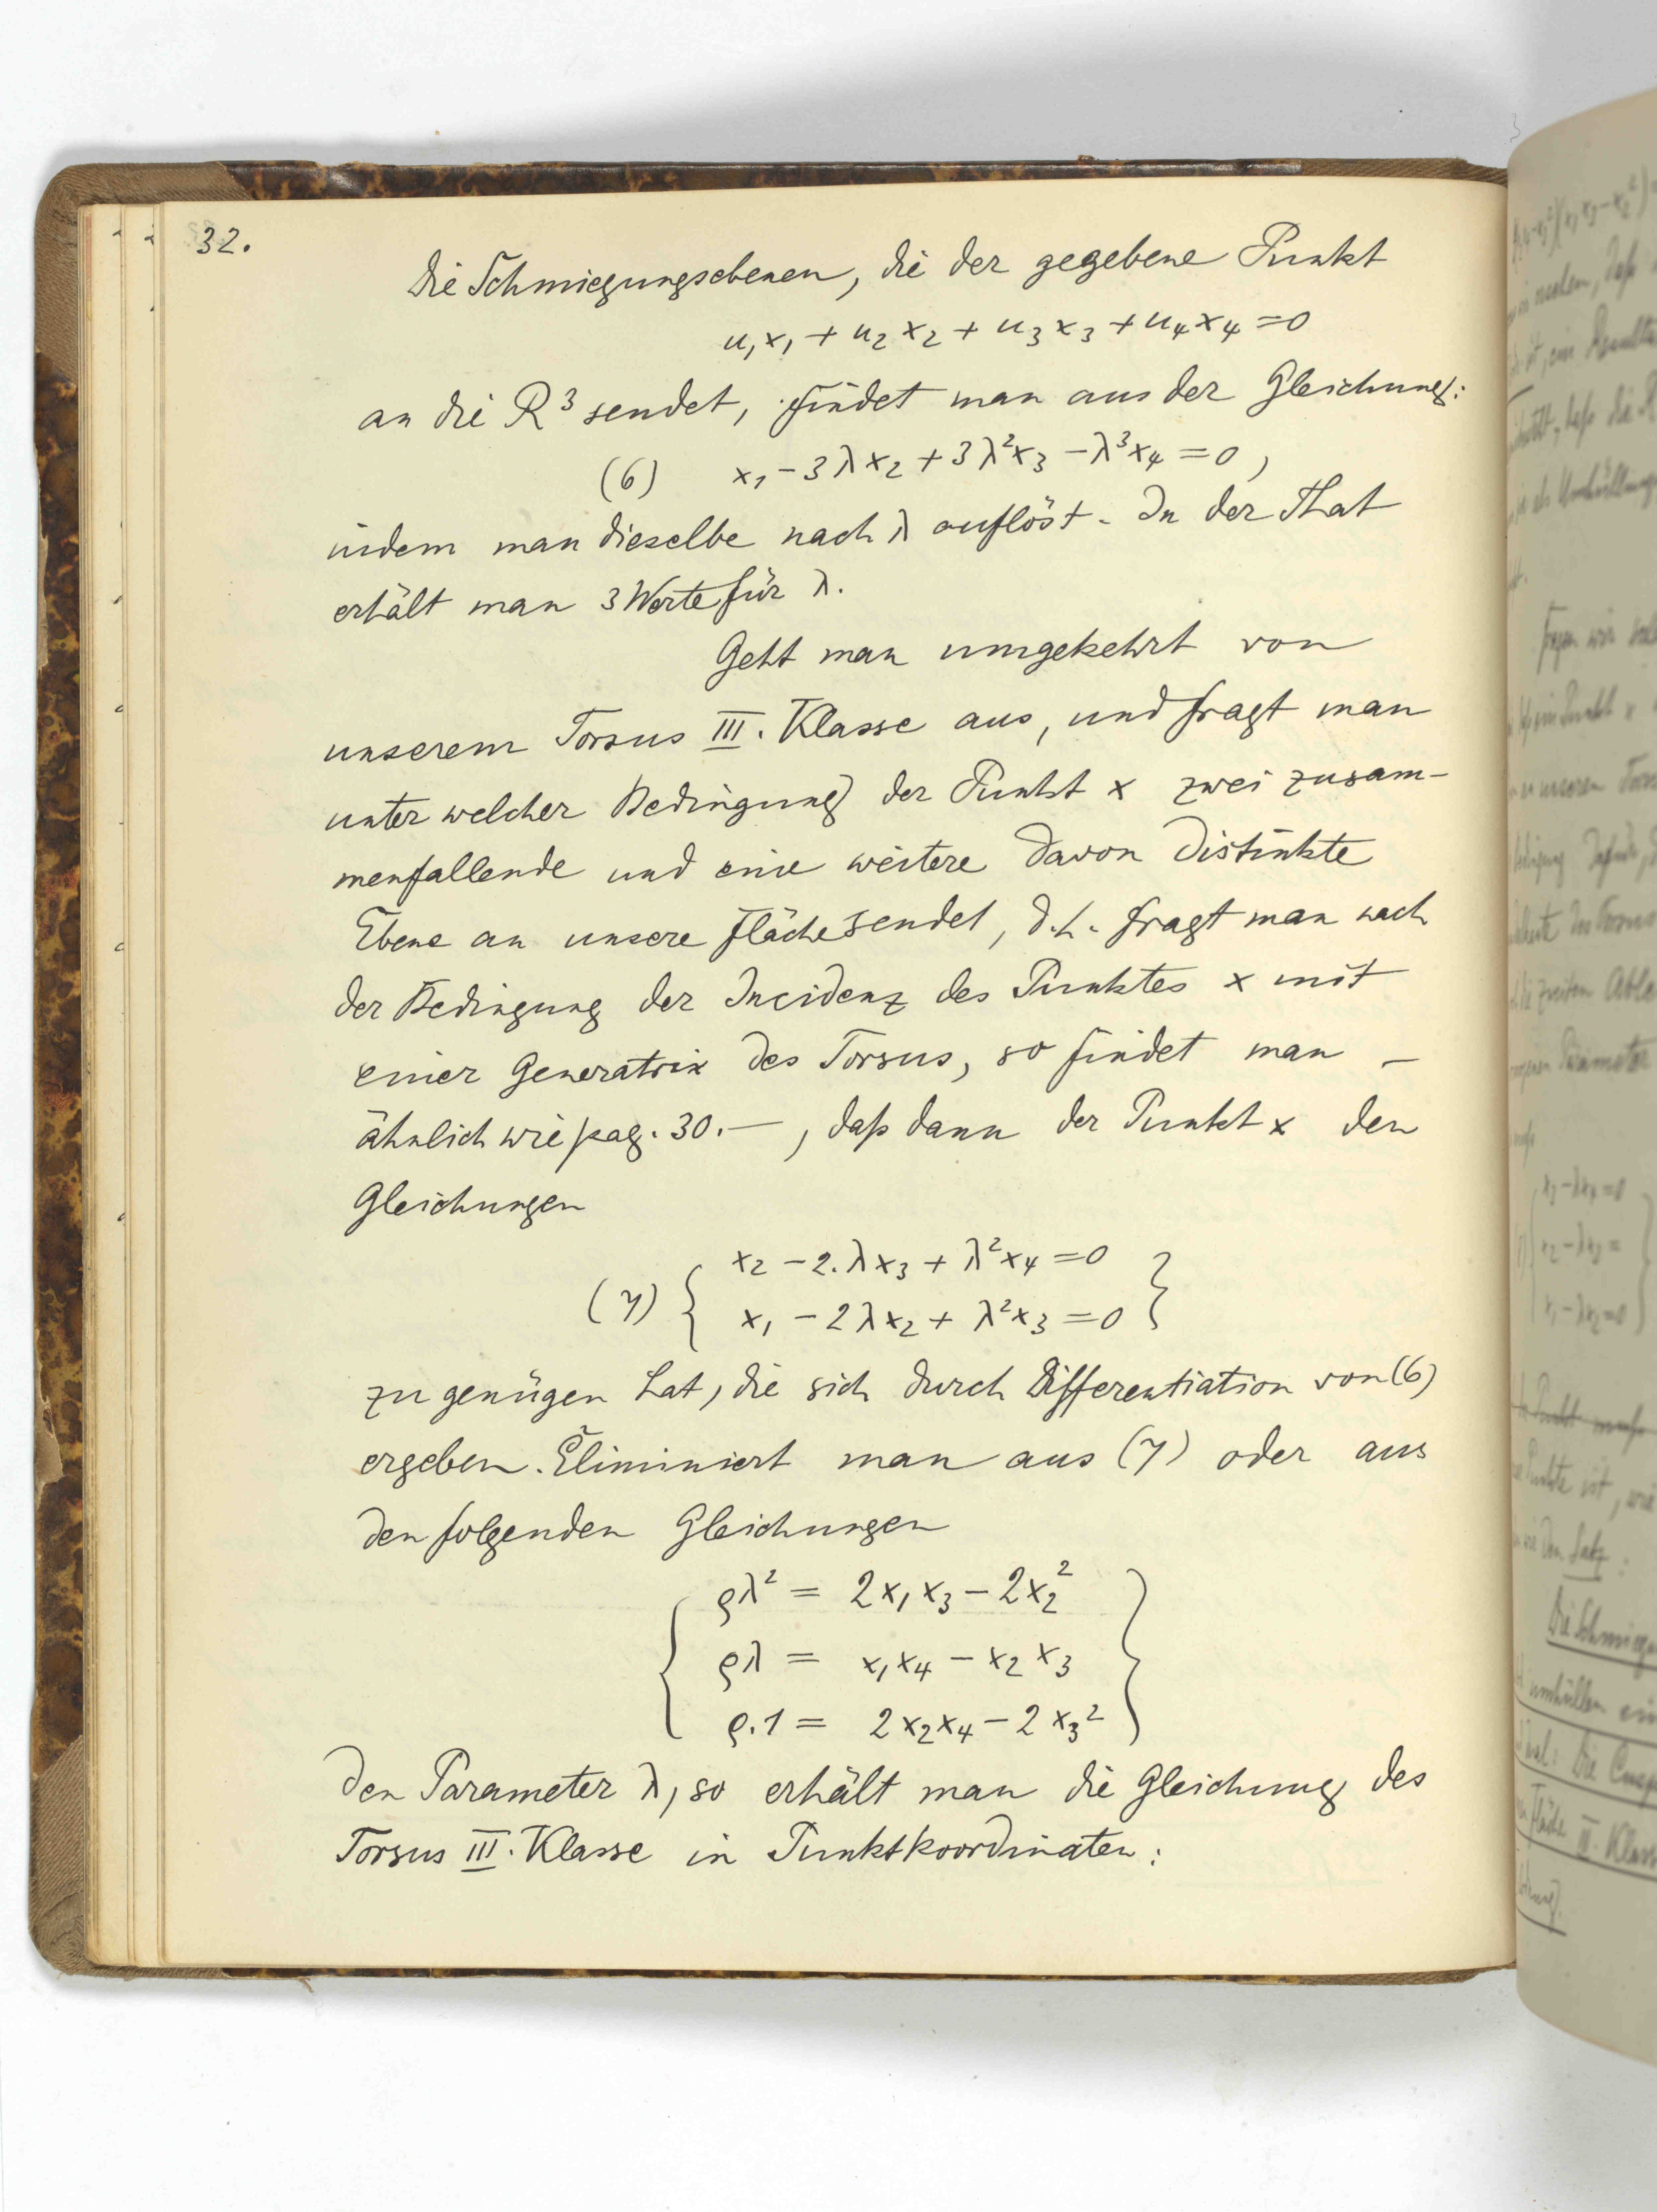 32.
Die Schmiegungsebenen, die der gegebene Punkt
u₁x₁ + u₂x₂ + u₃x₃ + u₄x₄ = 0
an die R³ sendet, findet man aus der Gleichung:
(6) x₁ - 3λx₂ + 3λ²x₃ - λ³x₄ = 0,
indem man dieselbe nach λ auflöst. In der That
erhält man 3 Werte für λ.
Geht man umgekehrt von
unserem Torsus III. Klasse aus, und fragt man
unter welcher Bedingung der Punkt x zwei zusam-
menfallende und eine weitere davon distinkte
Ebene an unsere Fläche sendet, d.h. fragt man nach
der Bedingung der Incidenz des Punktes x mit
einer Generatrix des Torsus, so findet man –
ähnlich wie pag. 30. –, daß dann der Punkt x den
Gleichungen
(7) { x₂ - 2.λx₃ + λ²x₄ = 0
x₁ - 2λx₂ + λ²x₃ = 0 }
zu genügen hat, die sich durch Differentiation von (6)
ergeben. Eliminiert man aus (7) oder aus
den folgenden Gleichungen
{ ϱλ² = 2x₁x₃ - 2x₂²
ϱλ = x₁x₄ - x₂x₃
ϱ.1 = 2x₂x₄ - 2x₃² }
den Parameter λ, so erhält man die Gleichung des
Torsus III. Klasse in Punktkoordinaten: